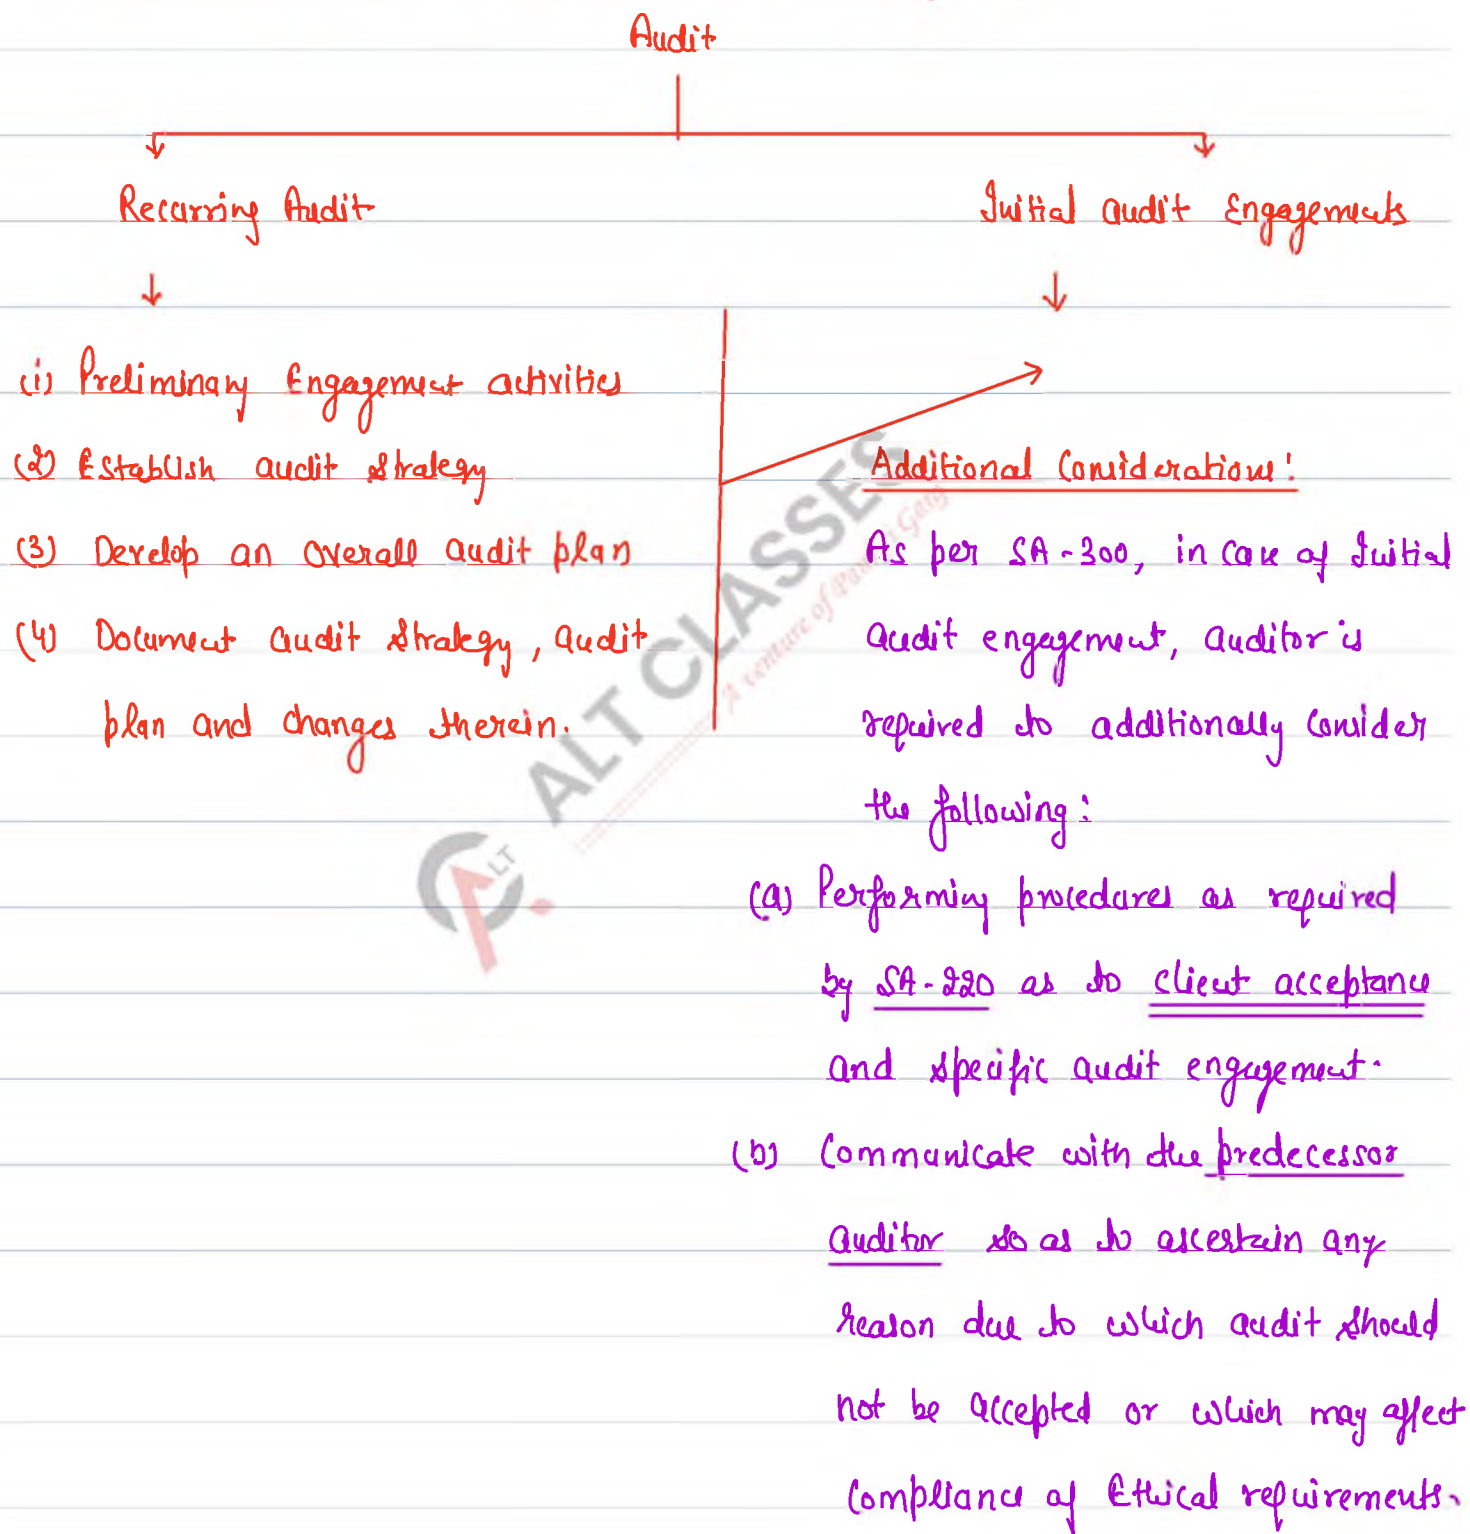 Audit
Recurring Audit
Initial audit Engagements
(1) Preliminary Engagement activities
(2) Establish audit strategy
(3) Develop an overall audit plan
(4) Document audit strategy, audit
plan and changes therein.
Additional Considerations:
As per SA-300, in case of Initial
audit engagement, auditor is
required to additionally consider
the following:
(a) Performing procedures as required
by SA-220 as to client acceptance
and specific audit engagement.
(b) Communicate with the predecessor
auditor so as to ascertain any
reason due to which audit should
not be accepted or which may affect
compliance of Ethical requirements.
ALT CLASSES
A venture of Pankaj Garg
LT